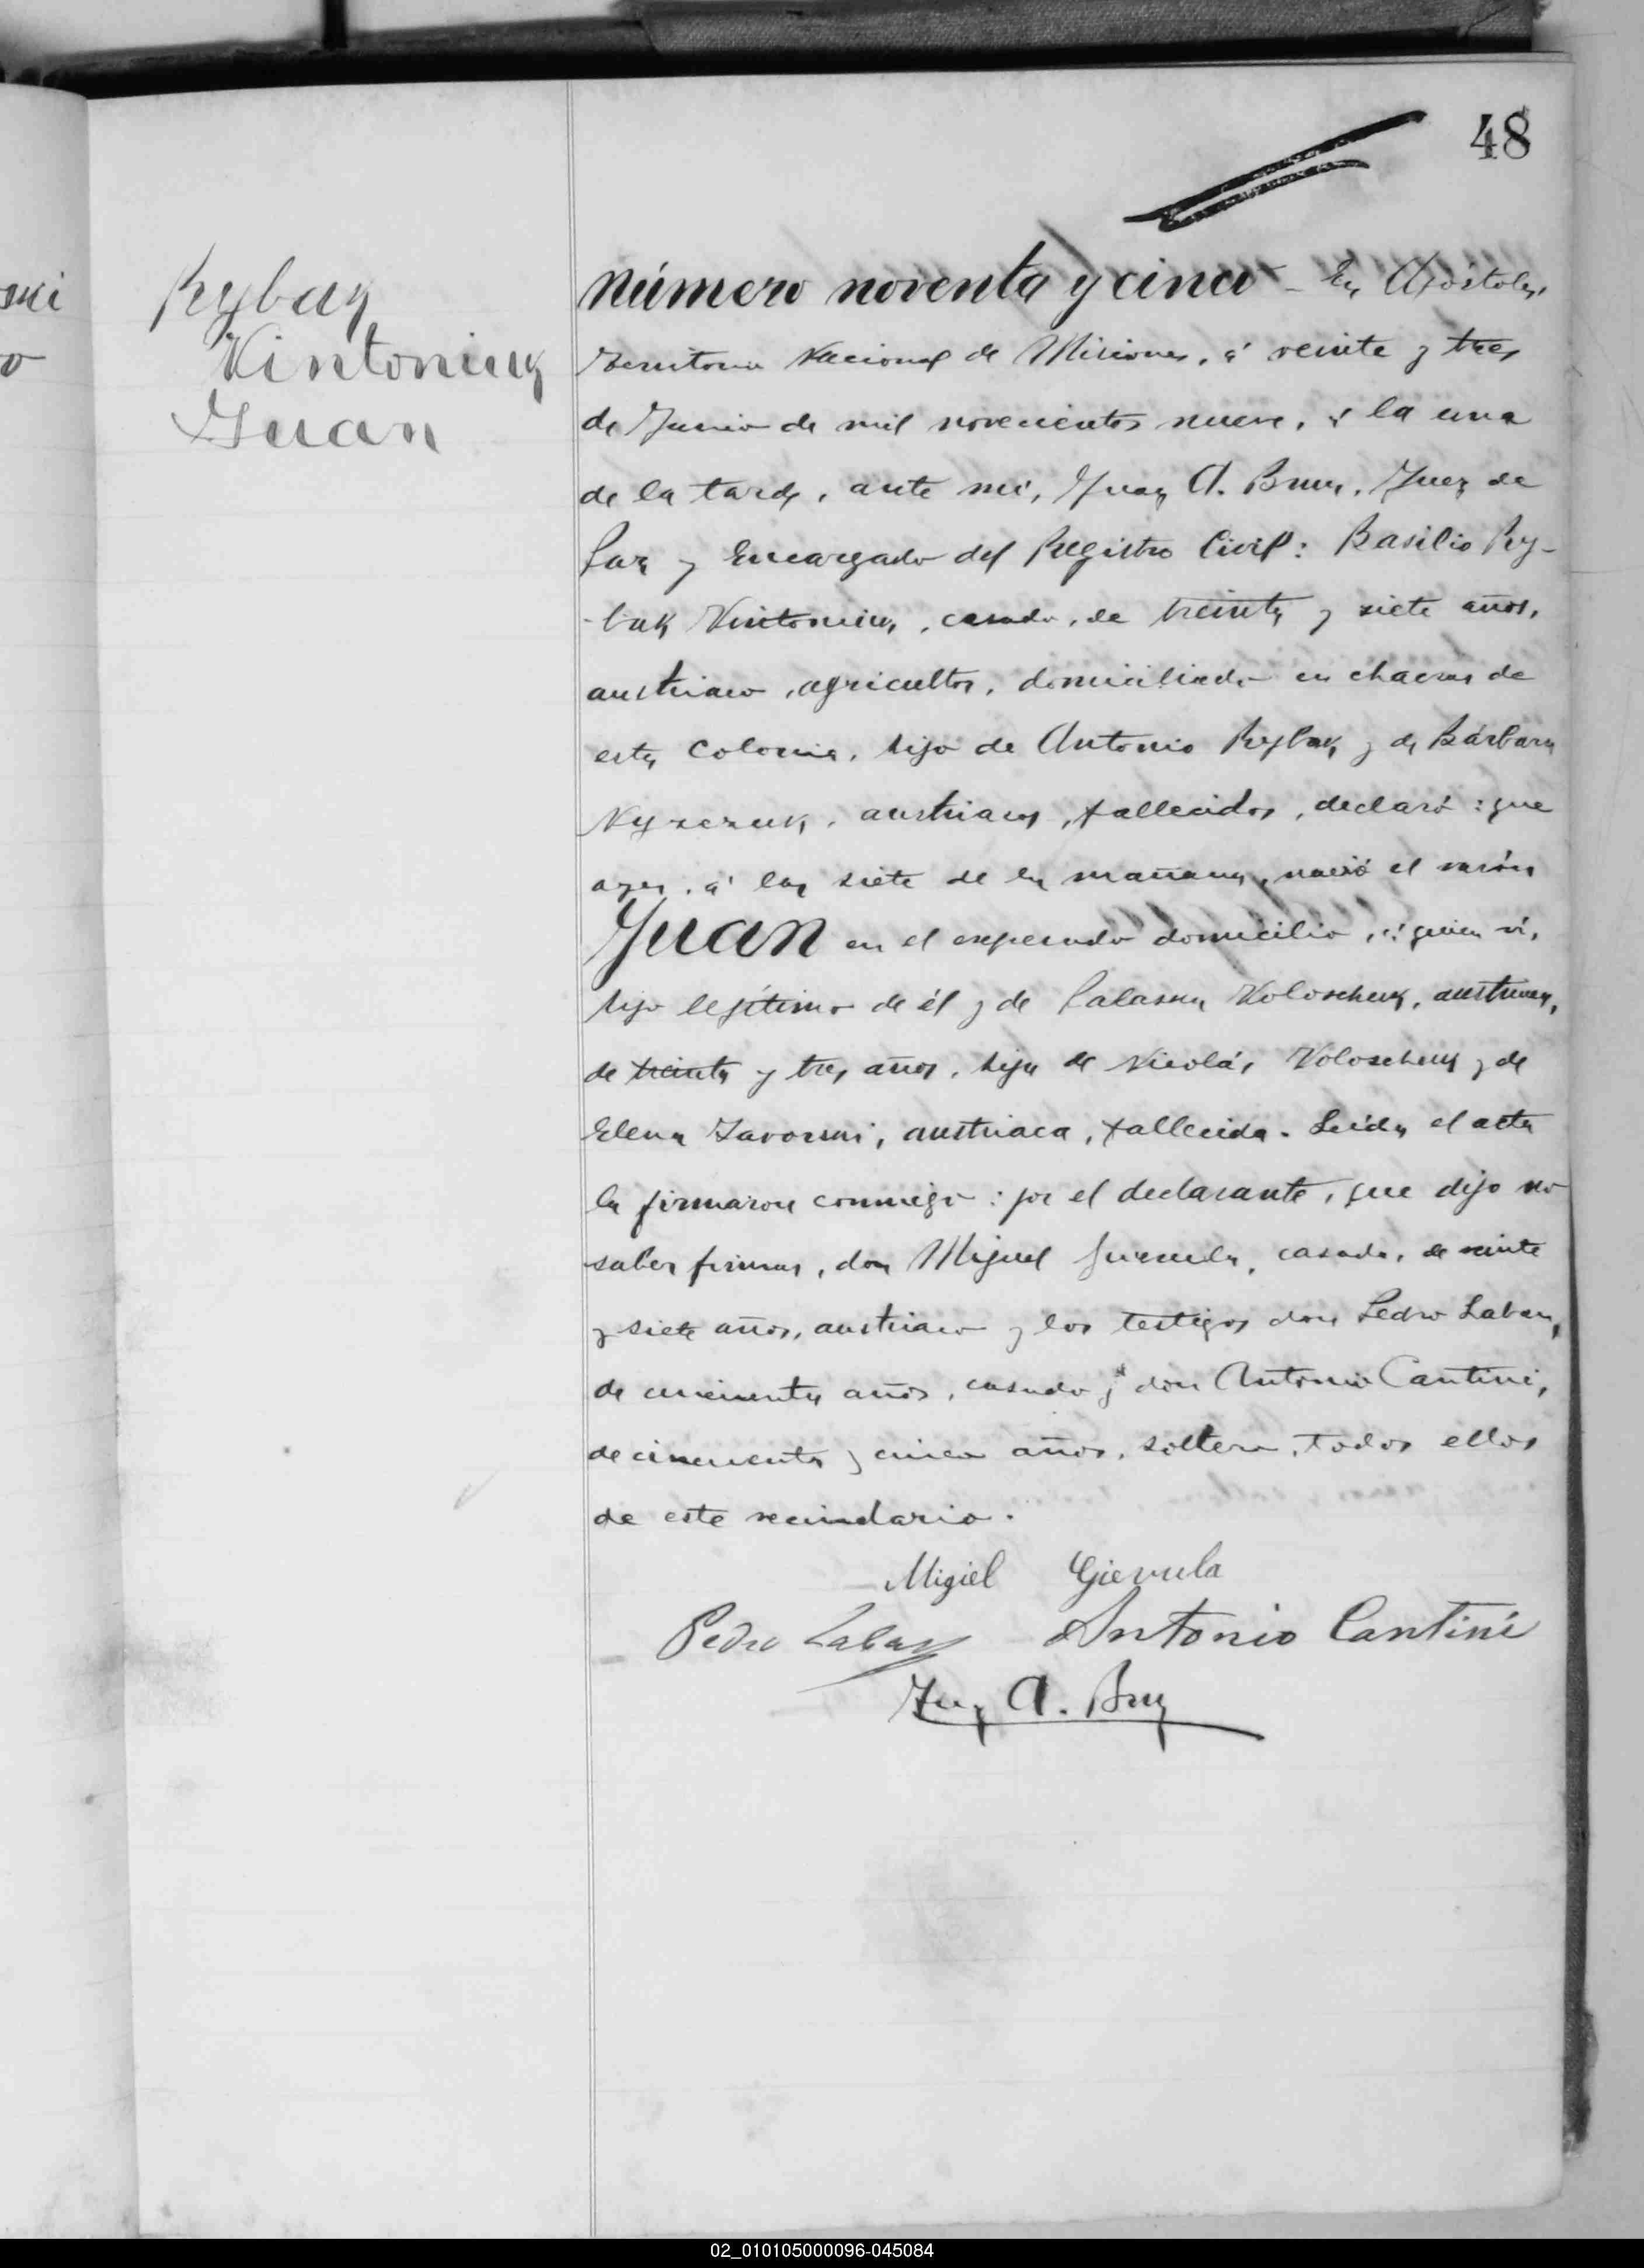 48
Rybak
Vintoniuk
Juan
Número noventa y cinco – En Apóstoles,
Territorio Nacional de Misiones, á veinte y tres
de Junio de mil novecientos nueve, á la una
de la tarde, ante mí, Juan A. Brun, Juez de
Paz y Encargado del Registro Civil: Basilio Ry-
-bak Vintoniuk, casado, de treinta y siete años,
austriaco, agricultor, domiciliado en chacras de
esta Colonia, hijo de Antonio Rybak y de Bárbara
austriacos, fallecidos, declaró: que
ayer, á las siete de la mañana, nació el varón
Juan en el expresado domicilio, á quien ví,
hijo legítimo de él y de Palasna Voloschuk, austriaca,
de treinta y tres años, hija de Nicolás Voloschuk y de
Elena Javorski, austriaca, fallecida. Leída el acta
la firmaron conmigo: por el declarante, que dijo no
saber firmar, don Miguel casado, de veinte
y siete años, austriaco y los testigos don Pedro Labay,
de cincuenta años, casado y don Antonio Cantini,
de cincuenta y cinco años, soltero, todos ellos
de este vecindario.
Migiel Gierula
Pedro Labay Antonio Cantini
Juan A. Brun
02_010105000096-045084